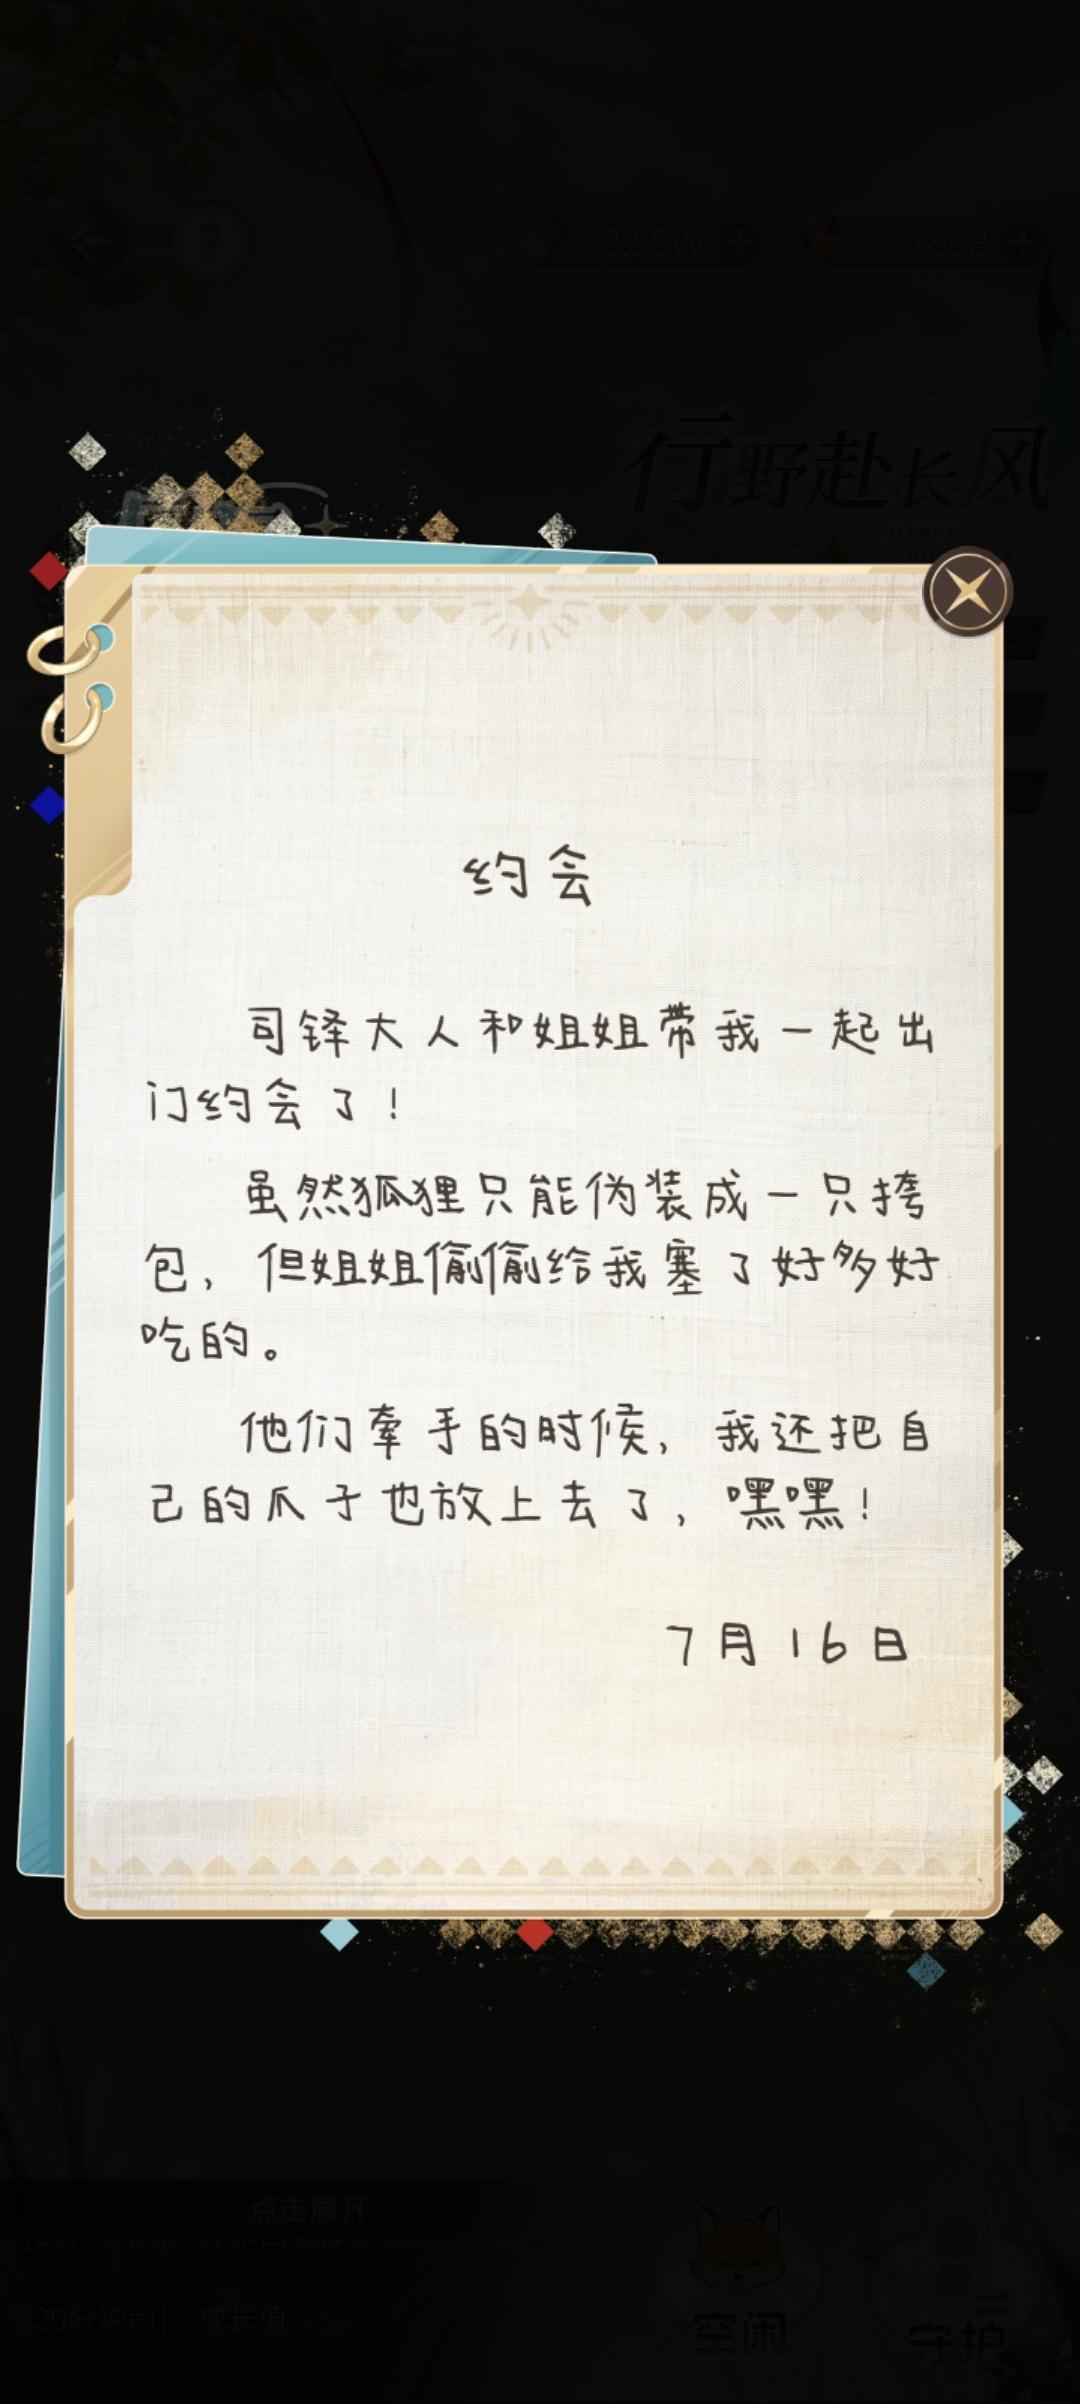 32.5W
1668
行野赴长风
HAPPY
约会
司铎大人和姐姐带我一起出
门约会了！
虽然狐狸只能伪装成一只挎
包，但姐姐偷偷给我塞了好多好
吃的。
他们牵手的时候，我还把自
己的爪子也放上去了，嘿嘿！
7月16日
点击展开
[20分钟前]：成长值
空闲
守护